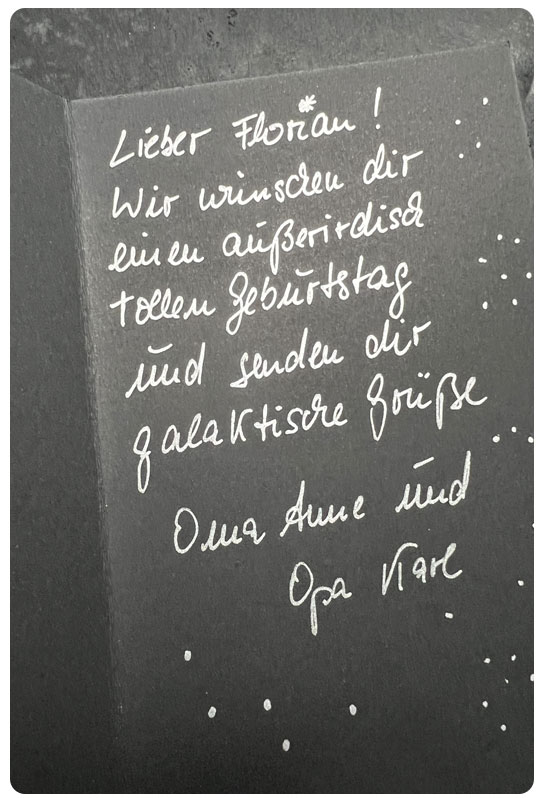 Lieber Florian!
Wir wünschen dir
einen außerirdisch
tollen Geburtstag
und senden dir
galaktische Grüße
Oma Anne und
Opa Karl